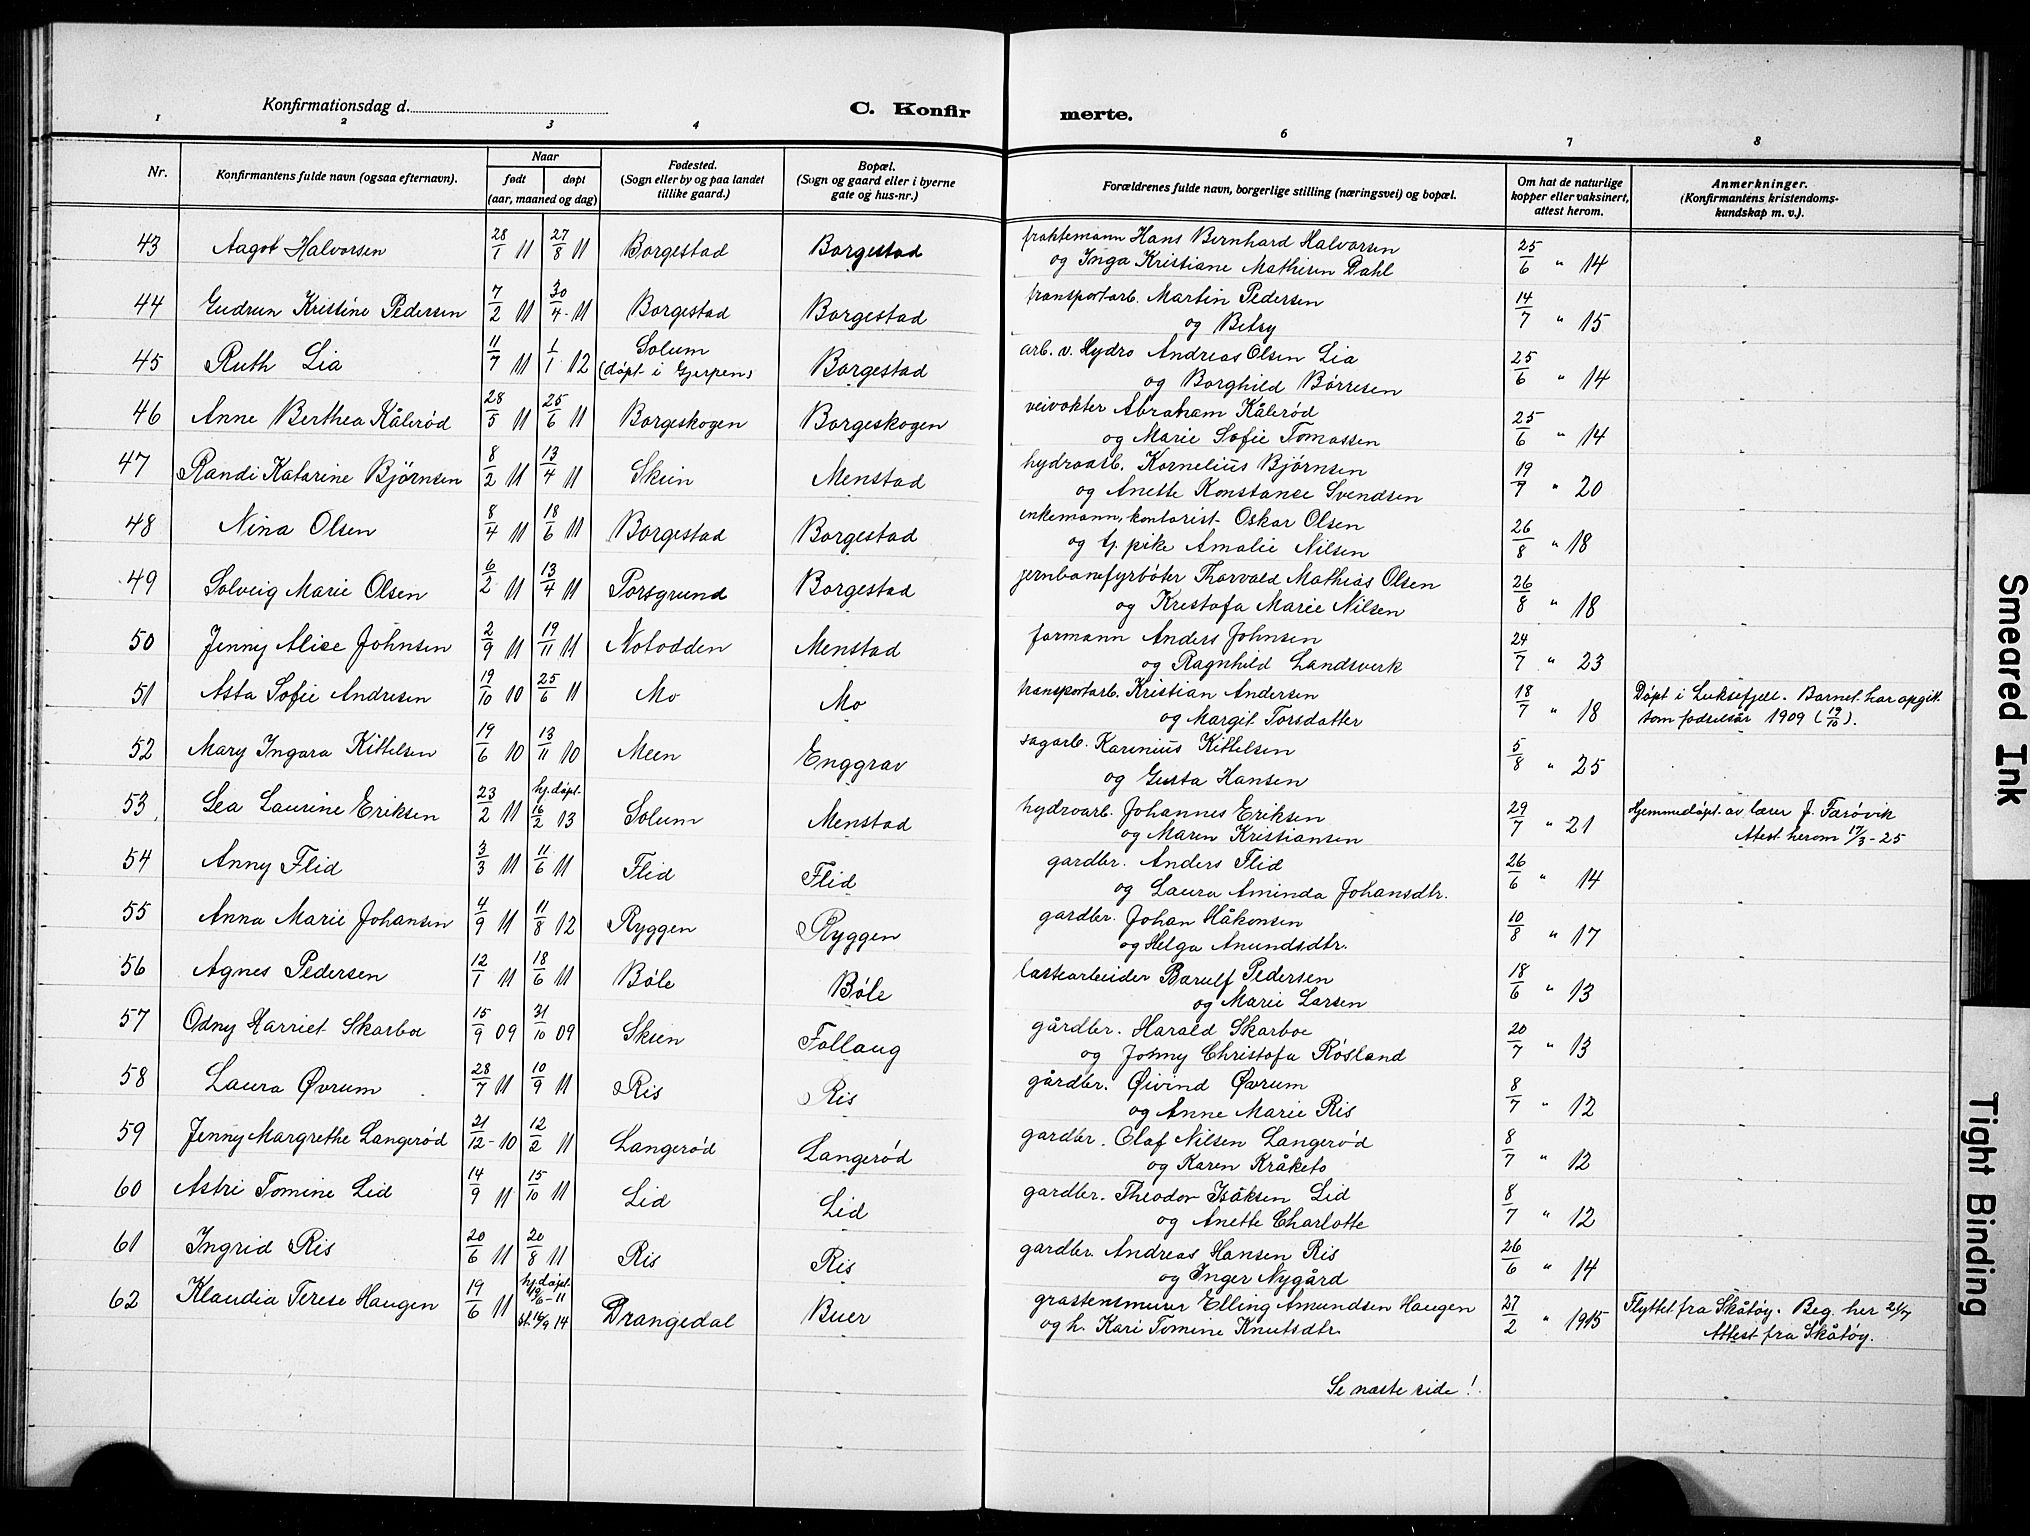 Konfirmationsdag d.
C. Konfir merte.
1 2 3 4 6 7 8
Nr.
Konfirmantens fulde navn (ogsaa efternavn).
Naar
født døpt
(aar, maaned og dag)
Fødested.
(Sogn eller by og paa landet
tillike gaard.)
Bopæl.
(Sogn og gaard eller i byerne
gate og hus-nr.)
Forældrenes fulde navn, borgerlige stilling (næringsvei) og bopæl.
Om hat de naturlige
kopper eller vaksinert,
attest herom.
Anmerkninger.
(Konfirmantens kristendoms-
kundskap m. v.).
43 Aagot Halvorsen 28/1 11 27/8 11 Borgestad Borgestad fraktemann Hans Bernhard Halvorsen 25/6 " 14
og Inga Kristiane Mathisen Dahl
44 Gudrun Kristine Pedersen 7/2 11 30/4 11 Borgestad Borgestad transportarb. Martin Pedersen 14/7 " 15
og Betsy
45 Ruth Lia 11/7 11 1/1 12 Solum Borgestad arb. v. Hydro Andreas Olsen Lia 25/6 " 14
(døpt i Gjerpen) og Borghild Børresen
46 Anne Berthea Kålerød 28/5 11 25/6 11 Borgeskogen Borgeskogen veivokter Abraham Kålerød 25/6 " 14
og Marie Sofie Tomassen
47 Randi Katarine Bjørnsen 8/2 11 13/4 11 Skien Menstad hydroarb. Kornelius Bjørnsen 19/7 " 20
og Anette Konstance Svendsen
48 Nina Olsen 8/4 11 18/6 11 Borgestad Borgestad enkemann, kontorist Oskar Olsen 26/8 " 18
og tj. pike Amalie Nilsen
49 Solveig Marie Olsen 6/2 11 13/4 11 Porsgrund Borgestad jernbanefyrbøter Thorvald Mathias Olsen 26/8 " 18
og Kristofa Marie Nilsen
50 Jenny Alice Johnsen 2/9 11 19/11 11 Notodden Menstad formann Anders Johnsen 24/7 " 23
og Ragnhild Landsverk
51 Asta Sofie Andresen 19/10 10 25/6 11 Mo Mo transportarb. Kristian Andersen 18/7 " 18 Døpt i Luksefjell. Barnet har opgit
og Margit Torsdatter som fødselsår 1909 (19/10).
52 Mary Ingara Kittelsen 19/6 10 13/11 10 Meen Enggrav sagarb. Karinius Kittelsen 5/8 " 25
og Gusta Hansen
53 Lea Laurine Eriksen 23/2 11 hj. døpt 16/2 13 Solum Menstad hydroarb. Johannes Eriksen 29/7 " 21 Hjemmedøpt av lærer J. Farøvik
og Maren Kristiansen Attest herom 17/3-25
54 Anny Flid 3/3 11 11/6 11 Flid Flid gardbr. Anders Flid 26/6 " 14
og Laura Aminda Johansdtr.
55 Anna Marie Johansen 4/9 11 11/8 12 Ryggen Ryggen gardbr. Johan Håkonsen 10/8 " 17
og Helga Anundsdtr.
56 Agnes Pedersen 12/1 11 18/6 11 Bøle Bøle lastearbeider Pedersen 18/6 " 13
og Marie Larsen
57 Odny Harriet Skarboe 15/9 09 31/10 09 Skien Follaug gårdbr. Harald Skarboe 20/7 " 13
og Johny Christofa Røsland
58 Laura Øvrum 28/7 11 10/9 11 Ris Ris gårdbr. Øivind Øvrum 8/7 " 12
og Anne Marie Ris
59 Jenny Margrethe Langerød 21/12-10 12/2 11 Langerød Langerød gardbr. Olaf Nilsen Langerød 8/7 " 12
og Karen Kråketo
60 Astri Tomine Lid 14/9 11 15/10 11 Lid Lid gardbr. Theodor Isaksen Lid 8/7 " 12
og Anette Charlotte
61 Ingrid Ris 20/6 11 20/8 11 Ris Ris gardbr. Andreas Hansen Ris 26/6 " 14
og Inger Nygård
62 Klaudia Terese Haugen 19/6 11 hj. døpt 19/6-11 Drangedal Buer gråstensmurer Elling Amundsen Haugen 27/2 " 1915 Flyttet fra Skåtøy. Beg. her 2/7
st. 14/9 14 og h. Kari Tomine Knutsdtr. Attest fra Skåtøy.
Se næste side!
Smeared Ink
Tight Binding